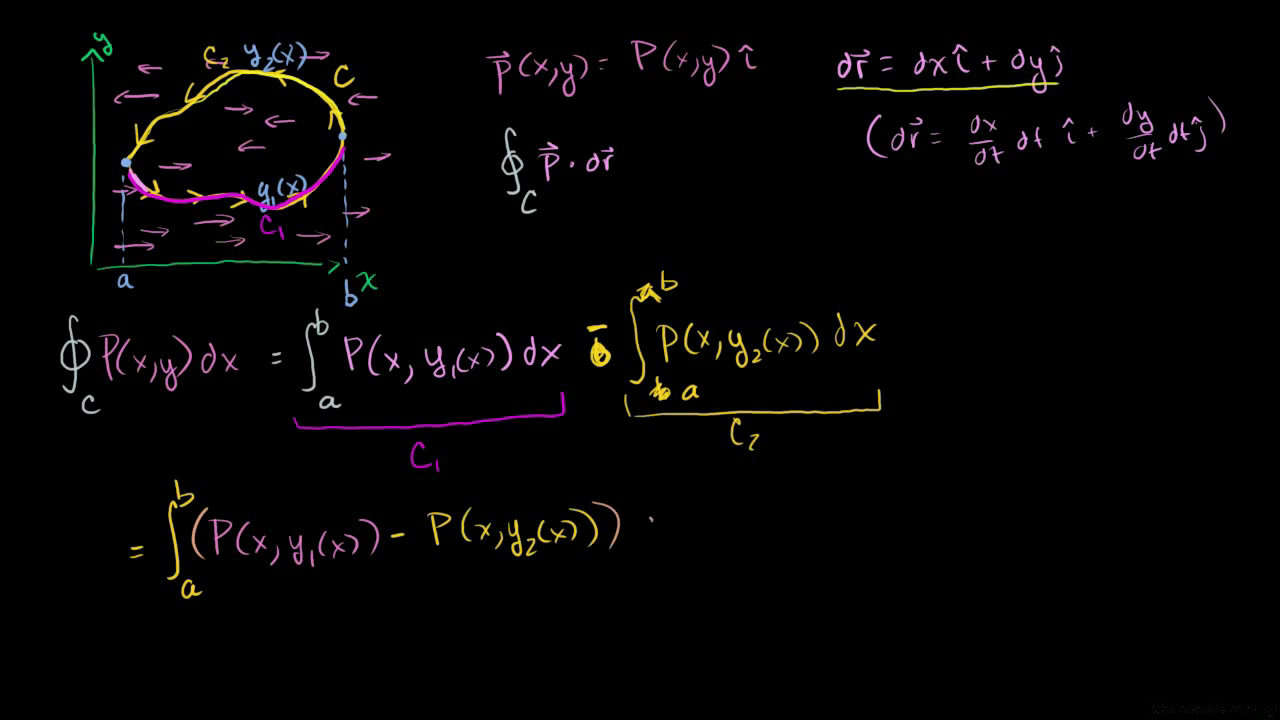 y
C₂ y₂(x) C
y₁(x)
C₁
a b x
P⃗(x,y) = P(x,y) î
dr⃗ = dx î + dy ĵ
(dr⃗ = dx/dt dt î + dy/dt dt ĵ)
∮_C P⃗ · dr⃗
∮_C P(x,y) dx = ∫_a^b P(x, y₁(x)) dx - ∫_a^b P(x, y₂(x)) dx
C₁ C₂
= ∫_a^b (P(x, y₁(x)) - P(x, y₂(x)))